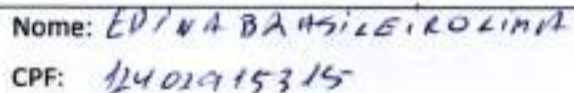 Nome: EDINA BRASILEIRO LIMA
CPF: 12402915315